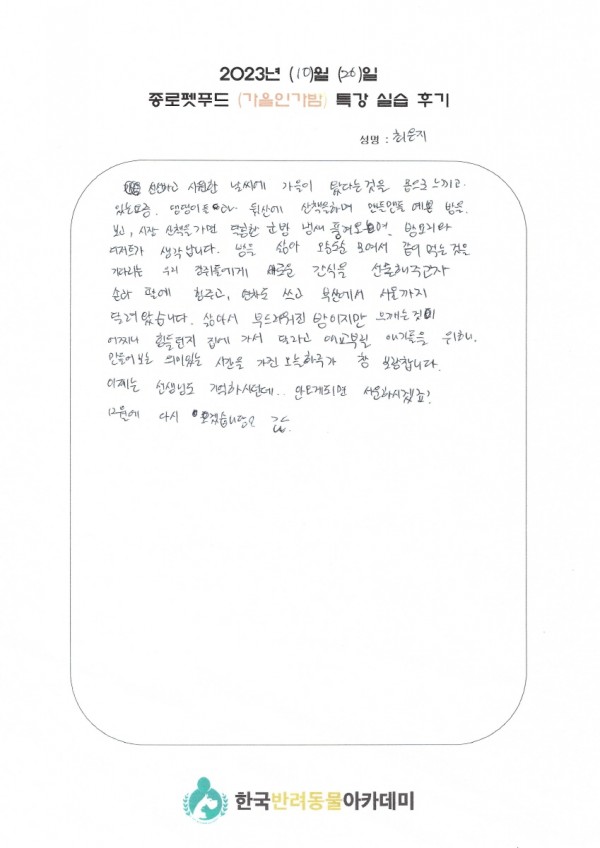 2023년 (10)월 (26)일
종로펫푸드 (가을인가밤) 특강 실습 후기
성명 : 최은지
선선하고 시원한 날씨에 가을이 왔다는것을 몸으로 느끼고
있는요즘. 댕댕이들 뒷산에 산책을하며 맨들맨들 예쁜 밤을
보고, 시장 산책을 가면 달달한 군밤 냄새 풍겨오며, 밤요리와
디저트가 생각납니다. 밤을 삶아 오순도순 모여서 같이 먹는 것을
기다리는 우리 강쥐들에게 새로운 간식을 선물해주고자
손과 팔에 힘주고, 연차도 쓰고 부산에서 서울까지
달려왔습니다. 삶아서 부드러워진 밤이지만 으깨는것이
어찌나 힘들던지 집에 가서 달라고 애교부릴 애기들을 위하니
만들어보는 의미있는 시간을 가진 오늘하루가 참 보람합니다.
이제는 선생님도 기억하시던데.. 안오게되면 서운하시겠죠?
12월에 다시 오겠습니다
한국반려동물아카데미